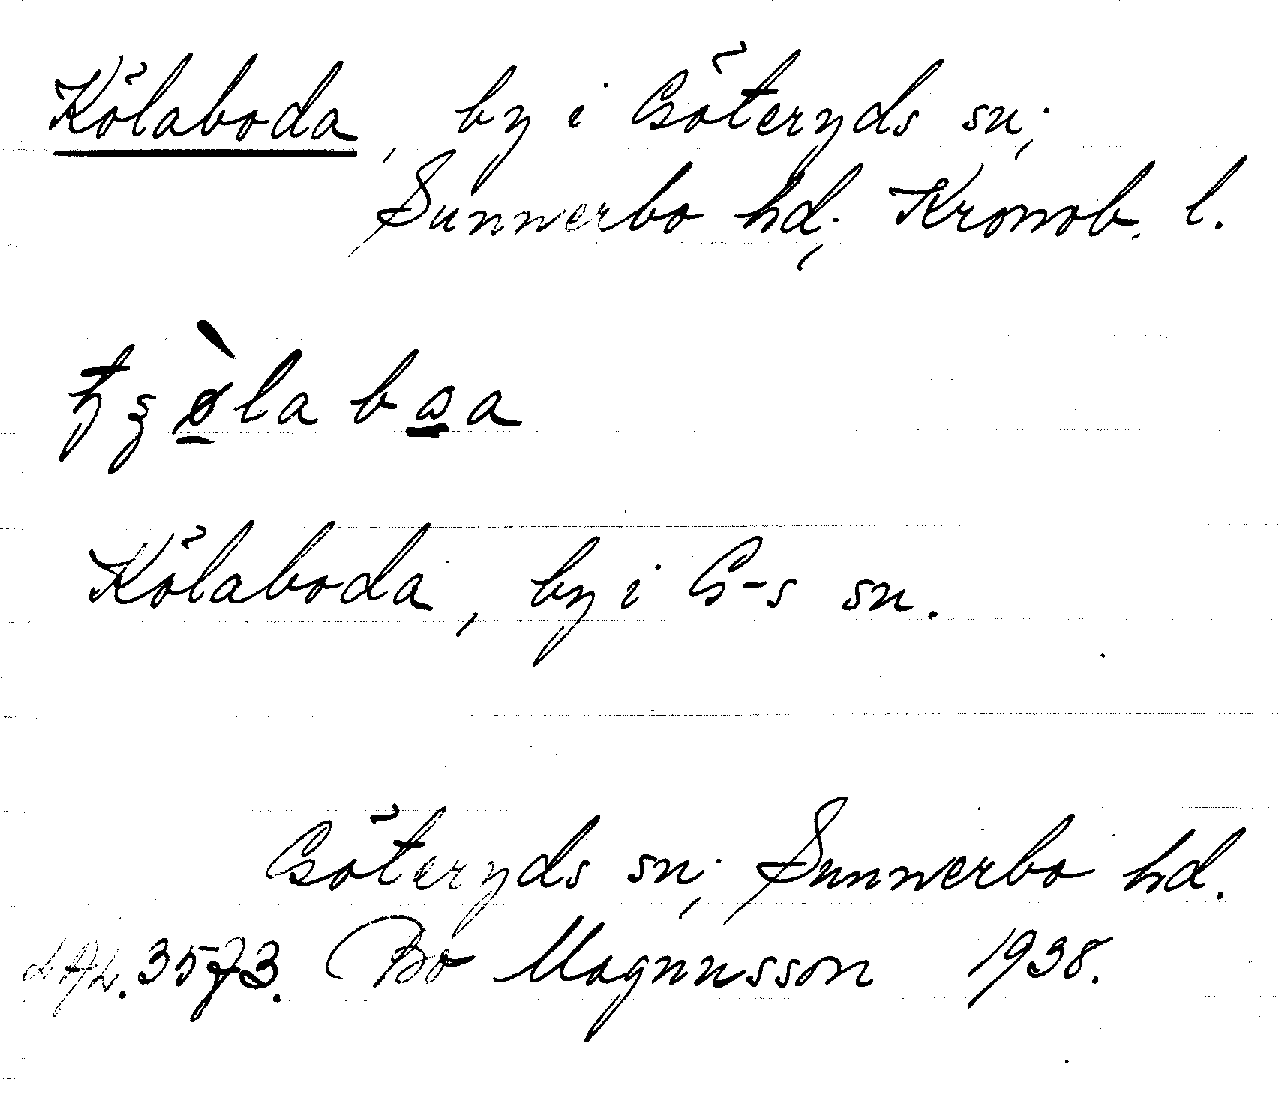 Kölaboda, by i Göteryds sn;
Sunnerbo hd; Kronob. l.
Kölaboda, by i G-s sn.
Göteryds sn; Sunnerbo hd.
3573. Bo Magnusson 1938.